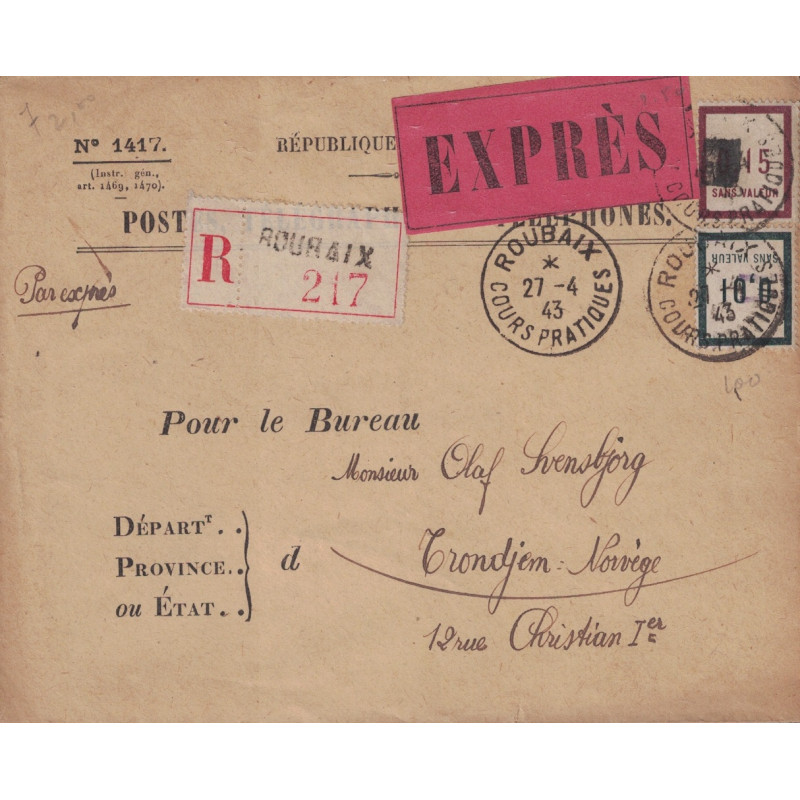 7 2,00
Nº 1417.
(Instr. gén.,
art. 1469, 1470).
RÉPUBLIQUE
EXPRÈS
15
SANS VALEUR
COURS PRATIQUES
POST
ÉLÉPHONES.
R
ROUBAIX
217
Par exprès
ROUBAIX
*
27 -4
43
COURS PRATIQUES
SANS VALEUR
0,01
ROUBAIX
*
27 -4
43
COURS PRATIQUES
Pour le Bureau
Monsieur Olaf Svensbjörg
DÉPARTᵀ. .
PROVINCE. .
ou ÉTAT. .
d
Trondjem - Norvège
12 rue Christian Iᵉʳ